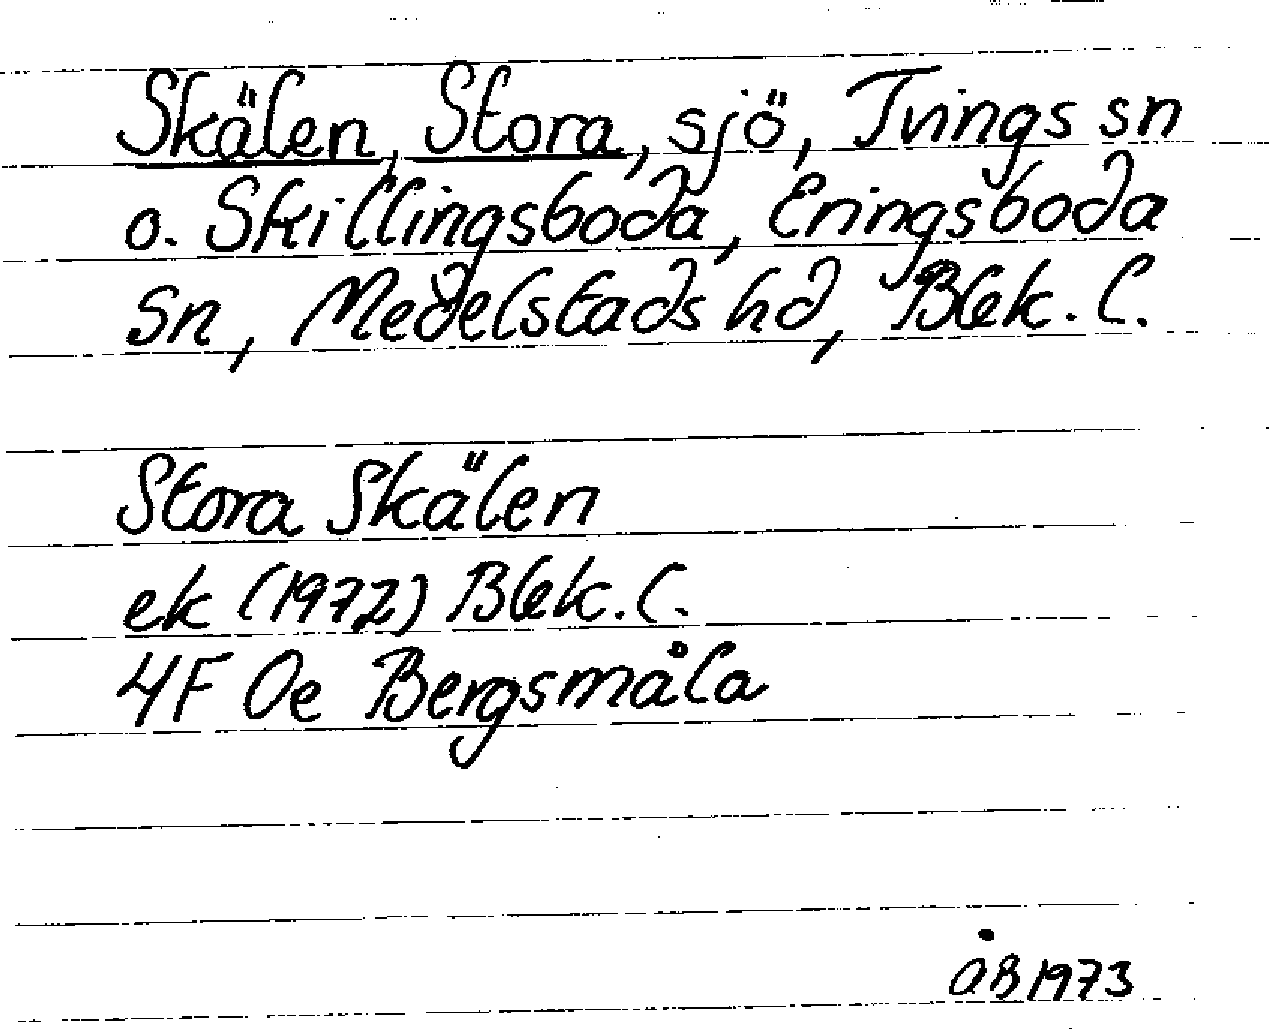 Skälen, Stora, sjö, Tvings sn
o. Skillingsboda, Eringsboda
sn, Medelstads hd, Blek. l.
Stora Skälen
ek (1972) Blek. l.
4F Oe Bergsmåla
ÅB 1973